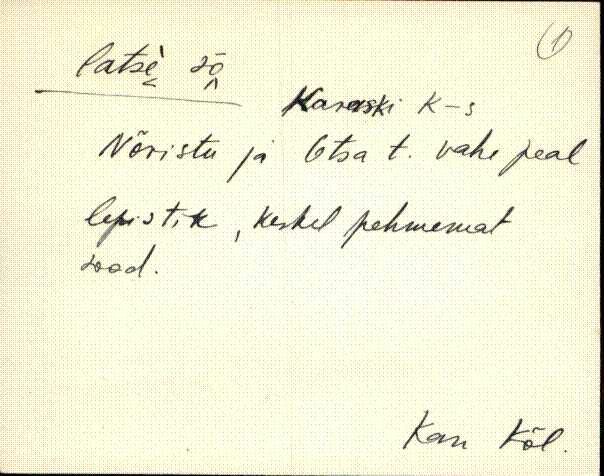 (1)
latsè sõ
Karaski K-s
Nõristu ja Otsa t. vahe peal
lepistik, keskel pehmemat
sood.
Kan Kõl.